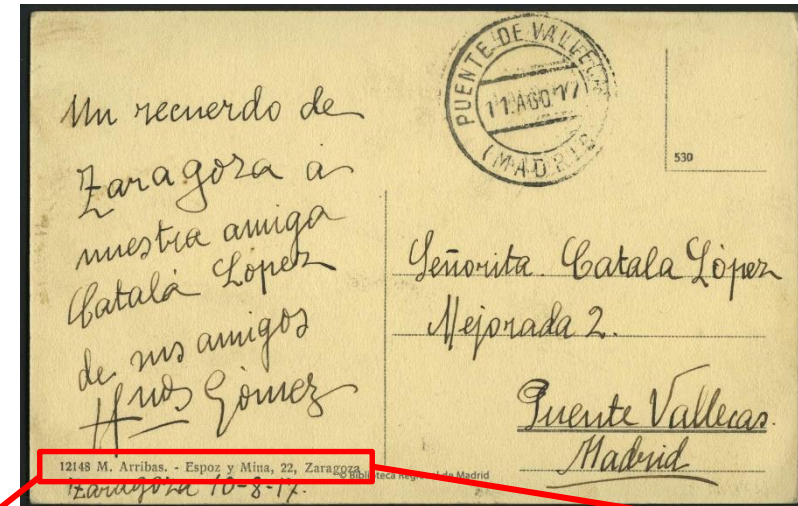 Un recuerdo de
Zaragoza á
nuestra amiga
Catalá López
de sus amigos
Hnos Gómez
12148 M. Arribas. - Espoz y Mina, 22, Zaragoza
Zaragoza 10-8-17.
© Biblioteca Regional de Madrid
PUENTE DE VALLECAS
11.AGO.17
(MADRID)
530
Señorita. Catala López
Mejorada 2.
Puente Vallecas.
Madrid